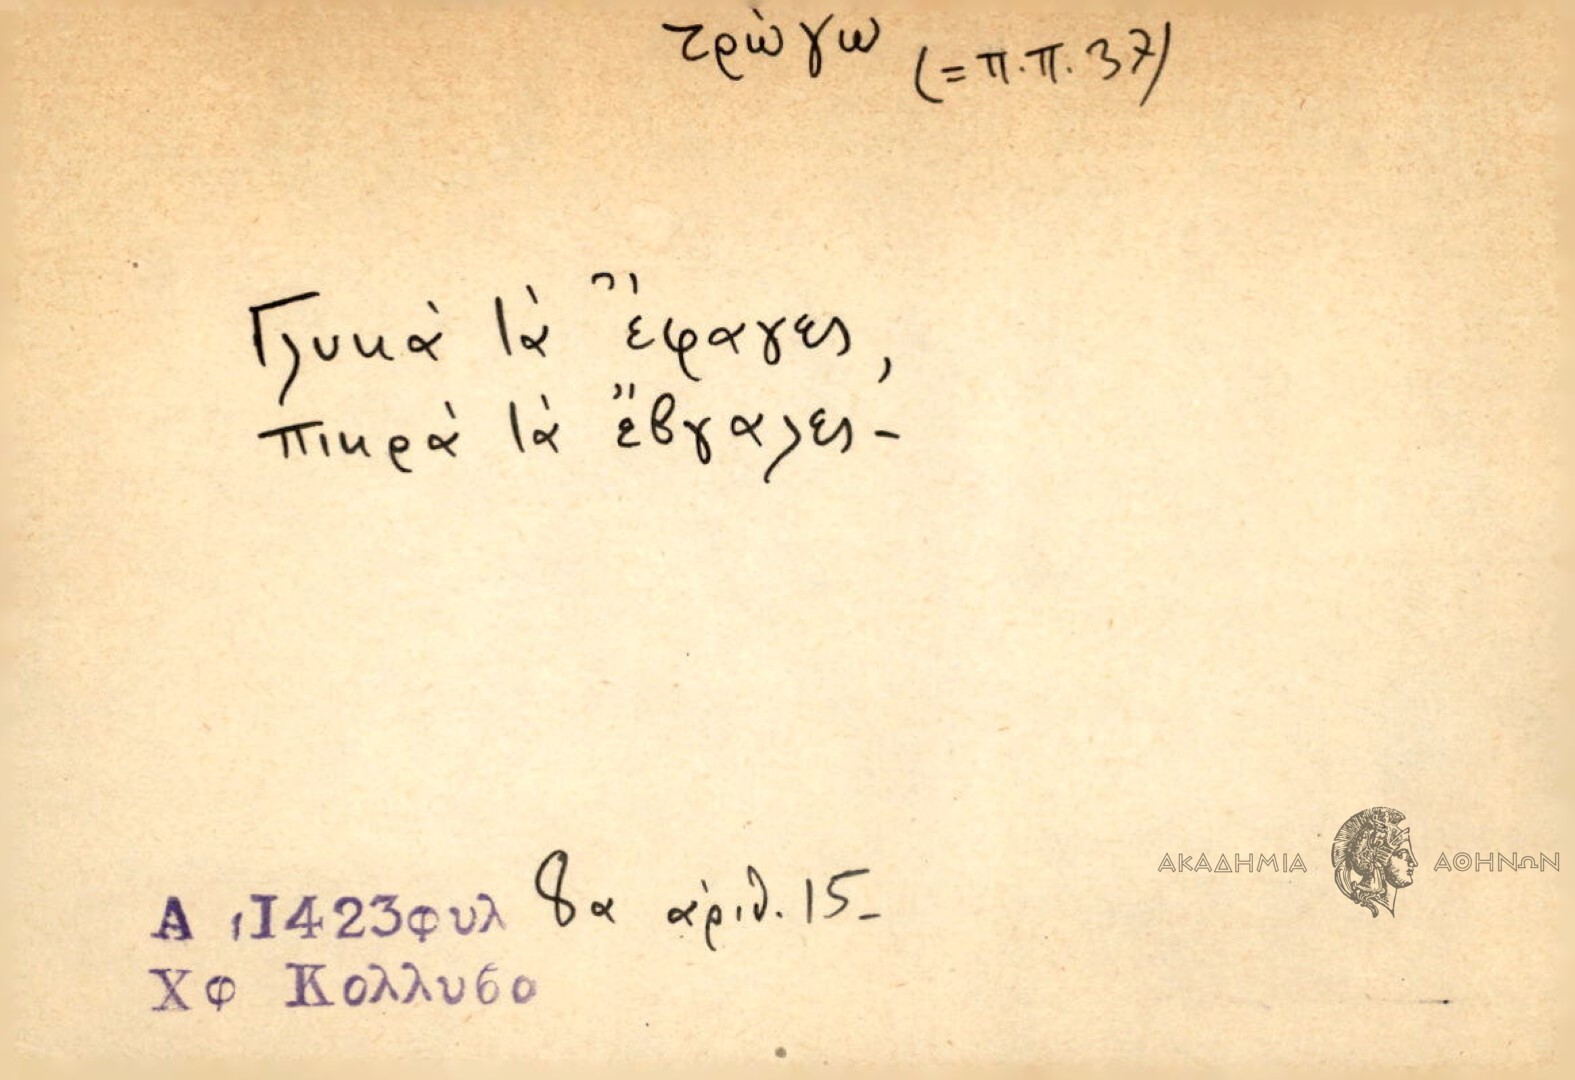 τρώγω (=π.π. 37)
Γλυκὰ τὰ ἔφαγες,
πικρὰ τὰ ἔβγαλες -
ΑΚΑΔΗΜΙΑ ΑΘΗΝΩΝ
Α ,1423φυλ 8α ἀριθ. 15-
Χφ Κολλυβο